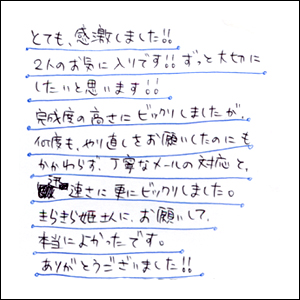 とても、感激しました!!
2人のお気に入りです!! ずっと大切に
したいと思います!!
完成度の高さにビックリしましたが、
何度も、やり直しをお願いしたのにも
かかわらず、丁寧なメールの対応と、
迅速さに更にビックリしました。
きらきら姫さんに、お願いして、
本当によかったです。
ありがとうございました!!